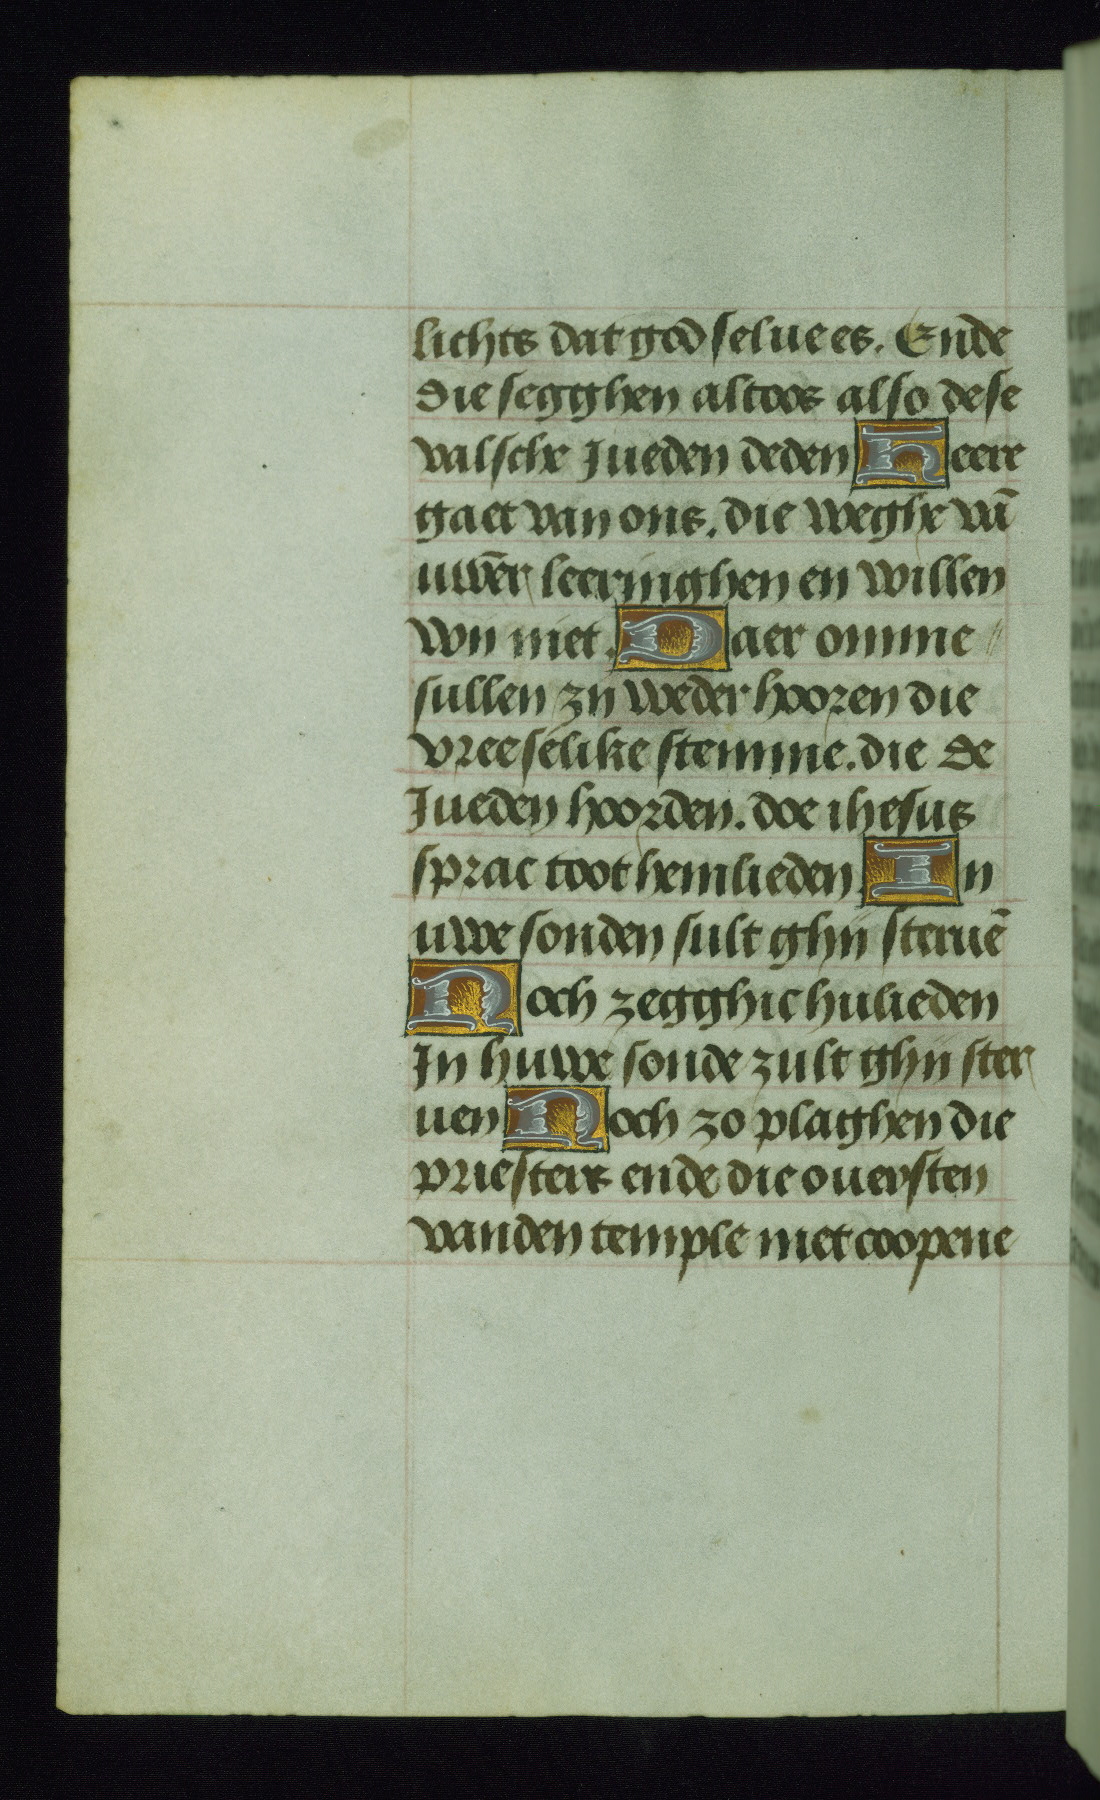 lichts dat god selue es. Ende
die segghen altoos also dese
valsche Jueden deden Heere
gaet van ons. die weghe vā
uwēr leeringhen en willen
wy niet. Daer omme
sullen zy weder hooren die
vreeselike stemme. die de
Jueden hoorden. doe ihesus
sprac toot hemlieden. In
uwe sonden sult ghy steruē
Noch zegghic hulieden
In huwe sonde zult ghy ster
uen Noch zo plaghen die
priesters ende die ouersten
vanden temple met coopene